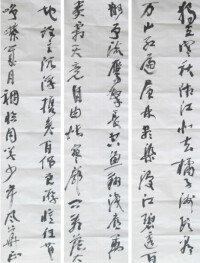 独立寒秋湘江北去橘子洲头看
万山红遍层林尽染漫江碧透百
舸争流鹰击长空鱼翔浅底万
类霜天竞自由怅寥廓问苍茫大
地谁主沉浮携来百侣曾游忆往昔
峥嵘岁月稠恰同学少年风华正